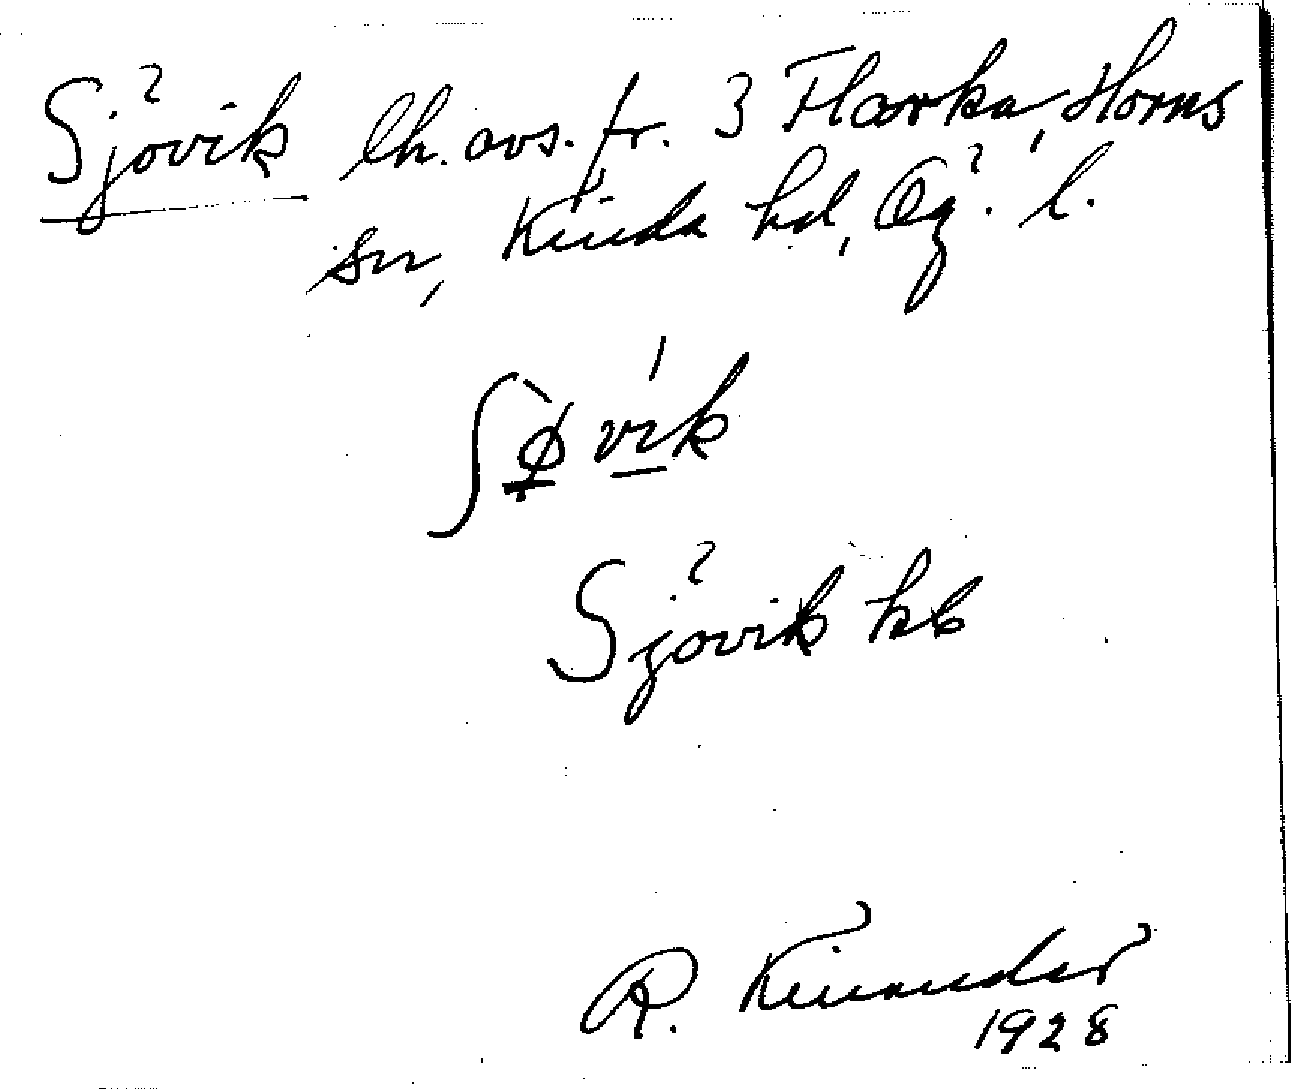 Sjövik lh. avs. fr. 3 Flarka, Horns
sn, Kinda hd, Ög. l.
ʃø̀vík
Sjövik kb
R. Kinander
1928